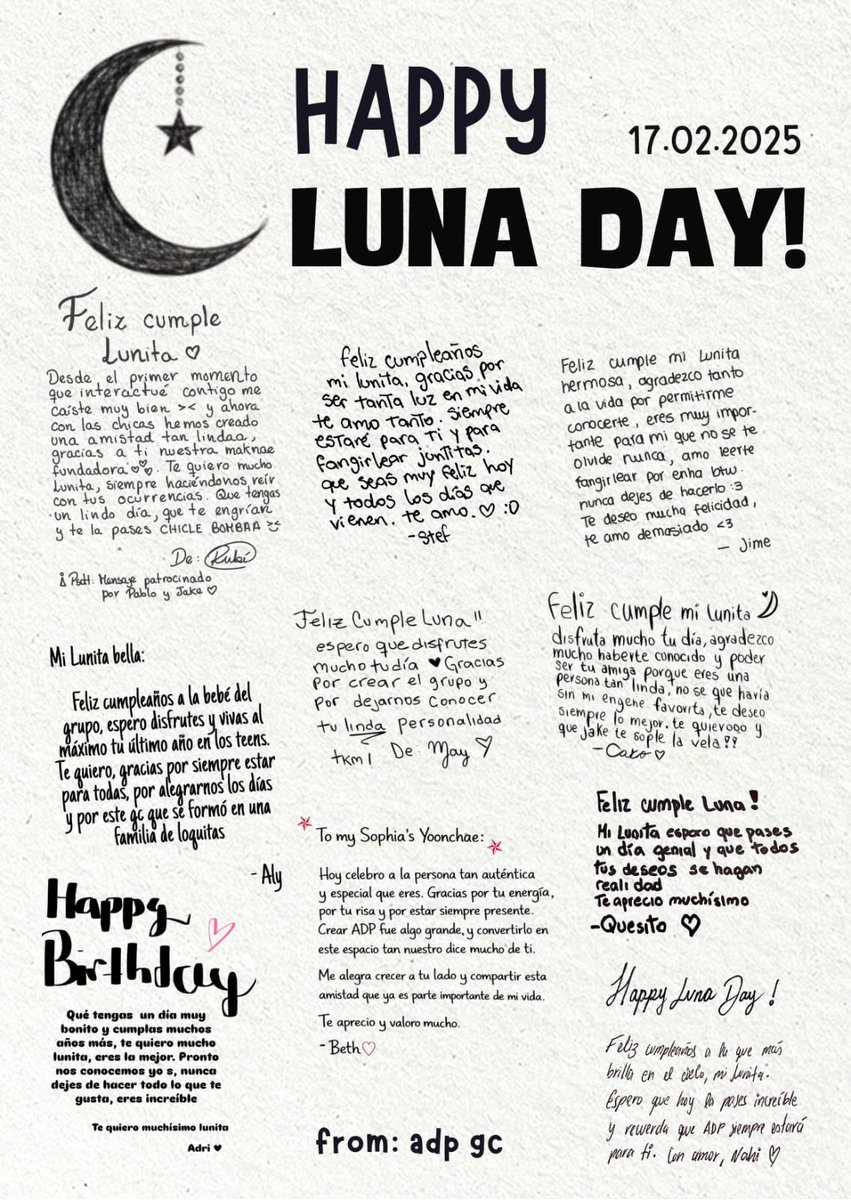 HAPPY
17.02.2025
LUNA DAY!
Feliz cumple
Lunita ♡
Desde el primer momento
que interactué contigo me
caíste muy bien >< y ahora
con las chicas hemos creado
una amistad tan lindaa,
gracias a ti nuestra maknae
fundadora ♡♡. Te quiero mucho
Lunita, siempre haciéndonos reír
con tus ocurrencias. Que tengas
un lindo día, que te engrían
y te la pases CHICLE BOMBAA
De: Rubí
Psdt: Mensaje patrocinado
por Pablo y Jake ♡
feliz cumpleaños
mi lunita, gracias por
ser tanta luz en mi vida
te amo tanto. siempre
estaré para ti y para
fangirlear juntitas.
que seas muy feliz hoy
y todos los días que
vienen. te amo. ♡ :D
-stef
Feliz cumple mi Lunita
hermosa, agradezco tanto
a la vida por permitirme
conocerte, eres muy impor-
tante para mi que no se te
olvide nunca, amo leerte
fangirlear por enha btw.
nunca dejes de hacerlo :3
Te deseo mucha felicidad,
te amo demasiado <3
— Jime
Mi Lunita bella:
Feliz cumpleaños a la bebé del
grupo, espero disfrutes y vivas al
máximo tu último año en los teens.
Te quiero, gracias por siempre estar
para todas, por alegrarnos los días
y por este gc que se formó en una
familia de loquitas
- Aly
Feliz Cumple Luna"
espero que disfrutes
mucho tu día ♥ Gracias
por crear el grupo y
por dejarnos conocer
tu linda personalidad
tkm! De May ♡
Feliz cumple mi lunita
disfruta mucho tu día, agradezco
mucho haberte conocido y poder
ser tu amiga porque eres una
persona tan linda, no se que haría
sin mi engene favorita, te deseo
siempre lo mejor. te quierooo y
que jake te sople la vela??
-Cako ♡
Feliz cumple Luna!
Mi Lunita espero que pases
un día genial y que todos
tus deseos se hagan
realidad
Te aprecio muchísimo
-Quesito ♡
To my Sophia's Yoonchae:
Hoy celebro a la persona tan auténtica
y especial que eres. Gracias por tu energía,
por tu risa y por estar siempre presente.
Crear ADP fue algo grande, y convertirlo en
este espacio tan nuestro dice mucho de ti.
Me alegra crecer a tu lado y compartir esta
amistad que ya es parte importante de mi vida.
Te aprecio y valoro mucho.
- Beth♡
Happy
Birthday
Qué tengas un día muy
bonito y cumplas muchos
años más, te quiero mucho
lunita, eres la mejor. Pronto
nos conocemos yo s, nunca
dejes de hacer todo lo que te
gusta, eres increíble
Te quiero muchísimo lunita
Adri ♥
Happy Luna Day!
Feliz cumpleaños a la que más
brilla en el cielo, mi lunita.
Espero que hoy la pases increíble
y recuerda que ADP siempre estará
para ti. Con amor, Nahi ♡
from: adp gc